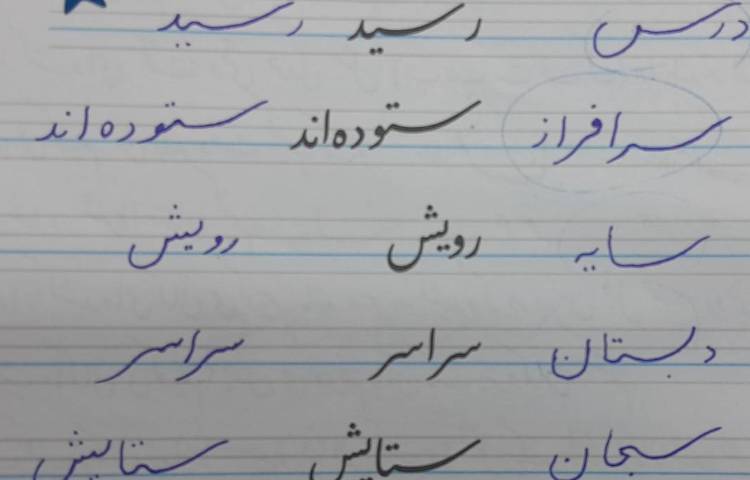 درس رسید رسید
سرافراز ستوده‌اند ستوده‌اند
سایه رویش رویش
دبستان سراسر سراسر
سبحان ستایش ستایش